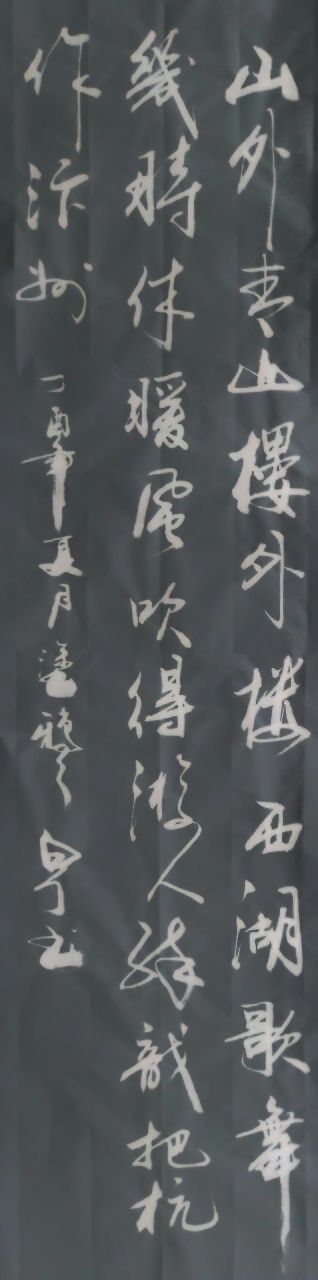 山外青山樓外楼西湖歌舞
幾時休暖風吹得游人醉
把杭
作汴州丁酉年夏月塗鴉
书